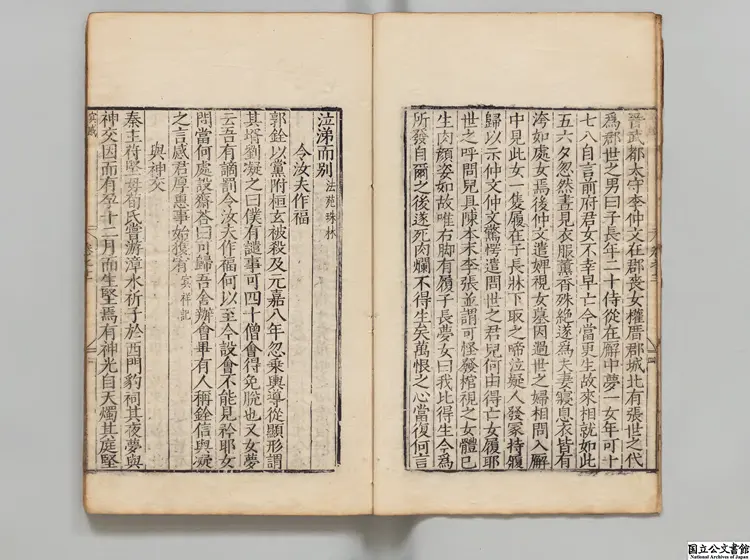 晉武都太守李仲文在郡喪女權厝郡城北有張世之代
爲郡世之男曰子長年二十侍從在廨中夢一女年可十
七八自言前府君女不幸早亡今當更生故來相就如此
五六夕忽然晝見衣服薰香殊絶遂爲夫妻寢息衣皆有
洿如處女焉後仲文遣婢視女墓因過世之婦相問入廨
中見此女一隻履在子長牀下取之啼泣疑人發冢持履
歸以示仲文仲文驚愕遣問世之君兒何由得亡女履耶
世之呼問兒具陳本末李張並謂可怪發棺視之女體已
生肉顏姿如故唯右脚有履子長夢女曰我比得生今爲
所發自爾之後遂死肉爛不得生矣萬恨之心當復何言
泣涕而别 法苑珠林
令汝夫作福
郭銓以黨附桓玄被殺及元嘉八年忽乘輿導從顯形謂
其壻劉凝之曰僕有謫事可四十僧會得免脫也又女夢
云吾有謫罰令汝夫作福何以至今設會不能見矜耶女
問當何處設齋荅曰可歸吾舍辦會畢有人稱銓信與凝
之言感君厚惠事始獲宥 冥祥記
與神交
秦主苻堅母茍氏嘗游漳水祈子於西門豹祠其夜夢與
神交因而有孕十二月而生堅焉有神光自天燭其庭堅
国立公文書館
National Archives of Japan